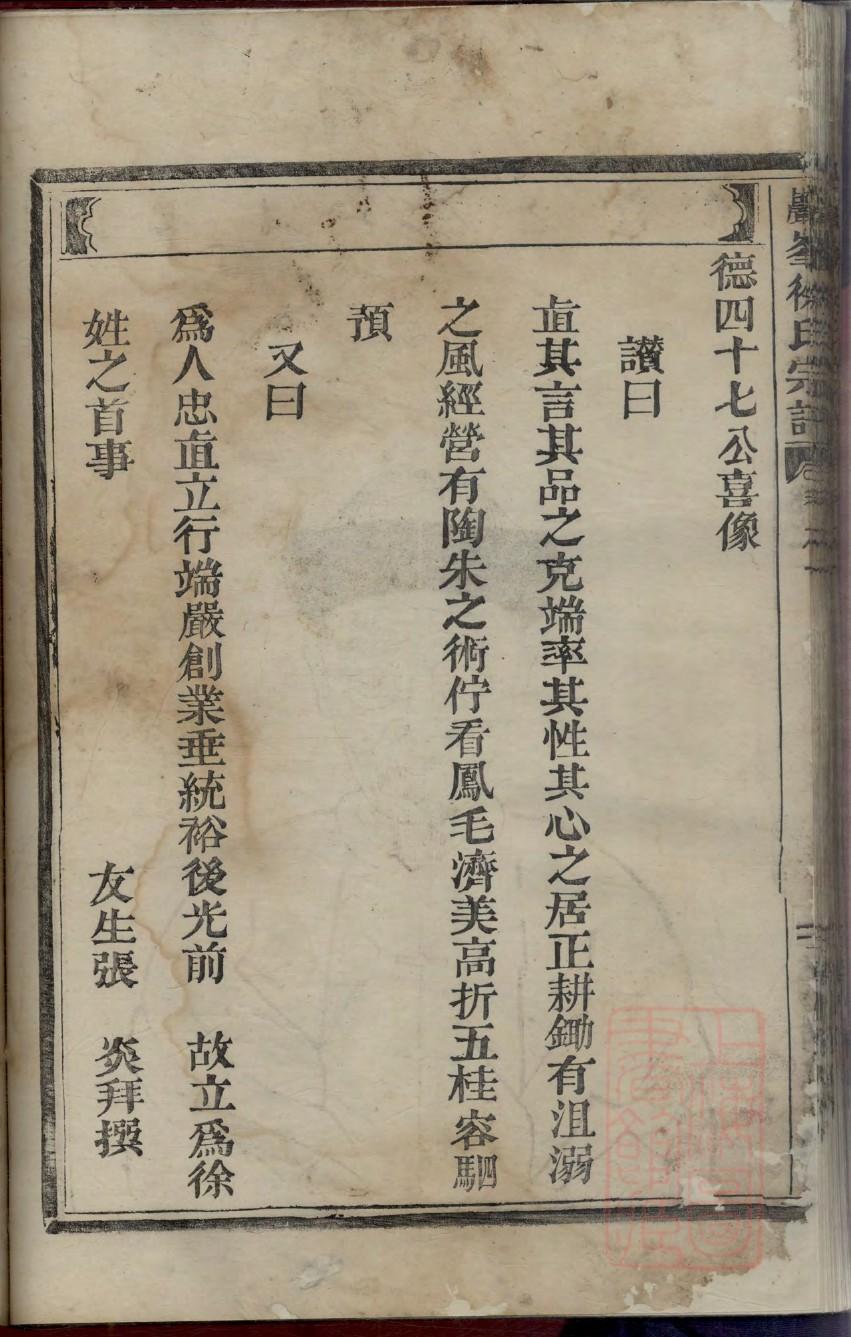 德四十七公喜像
讚曰
直其言其品之克端率其性其心之居正耕鋤有沮溺
之風經營有陶朱之術佇看鳳毛濟美高折五桂容駟
預
又曰
爲人忠直立行端嚴創業垂統裕後光前 故立爲徐
姓之首事
友生張 炎拜撰
徐氏宗譜